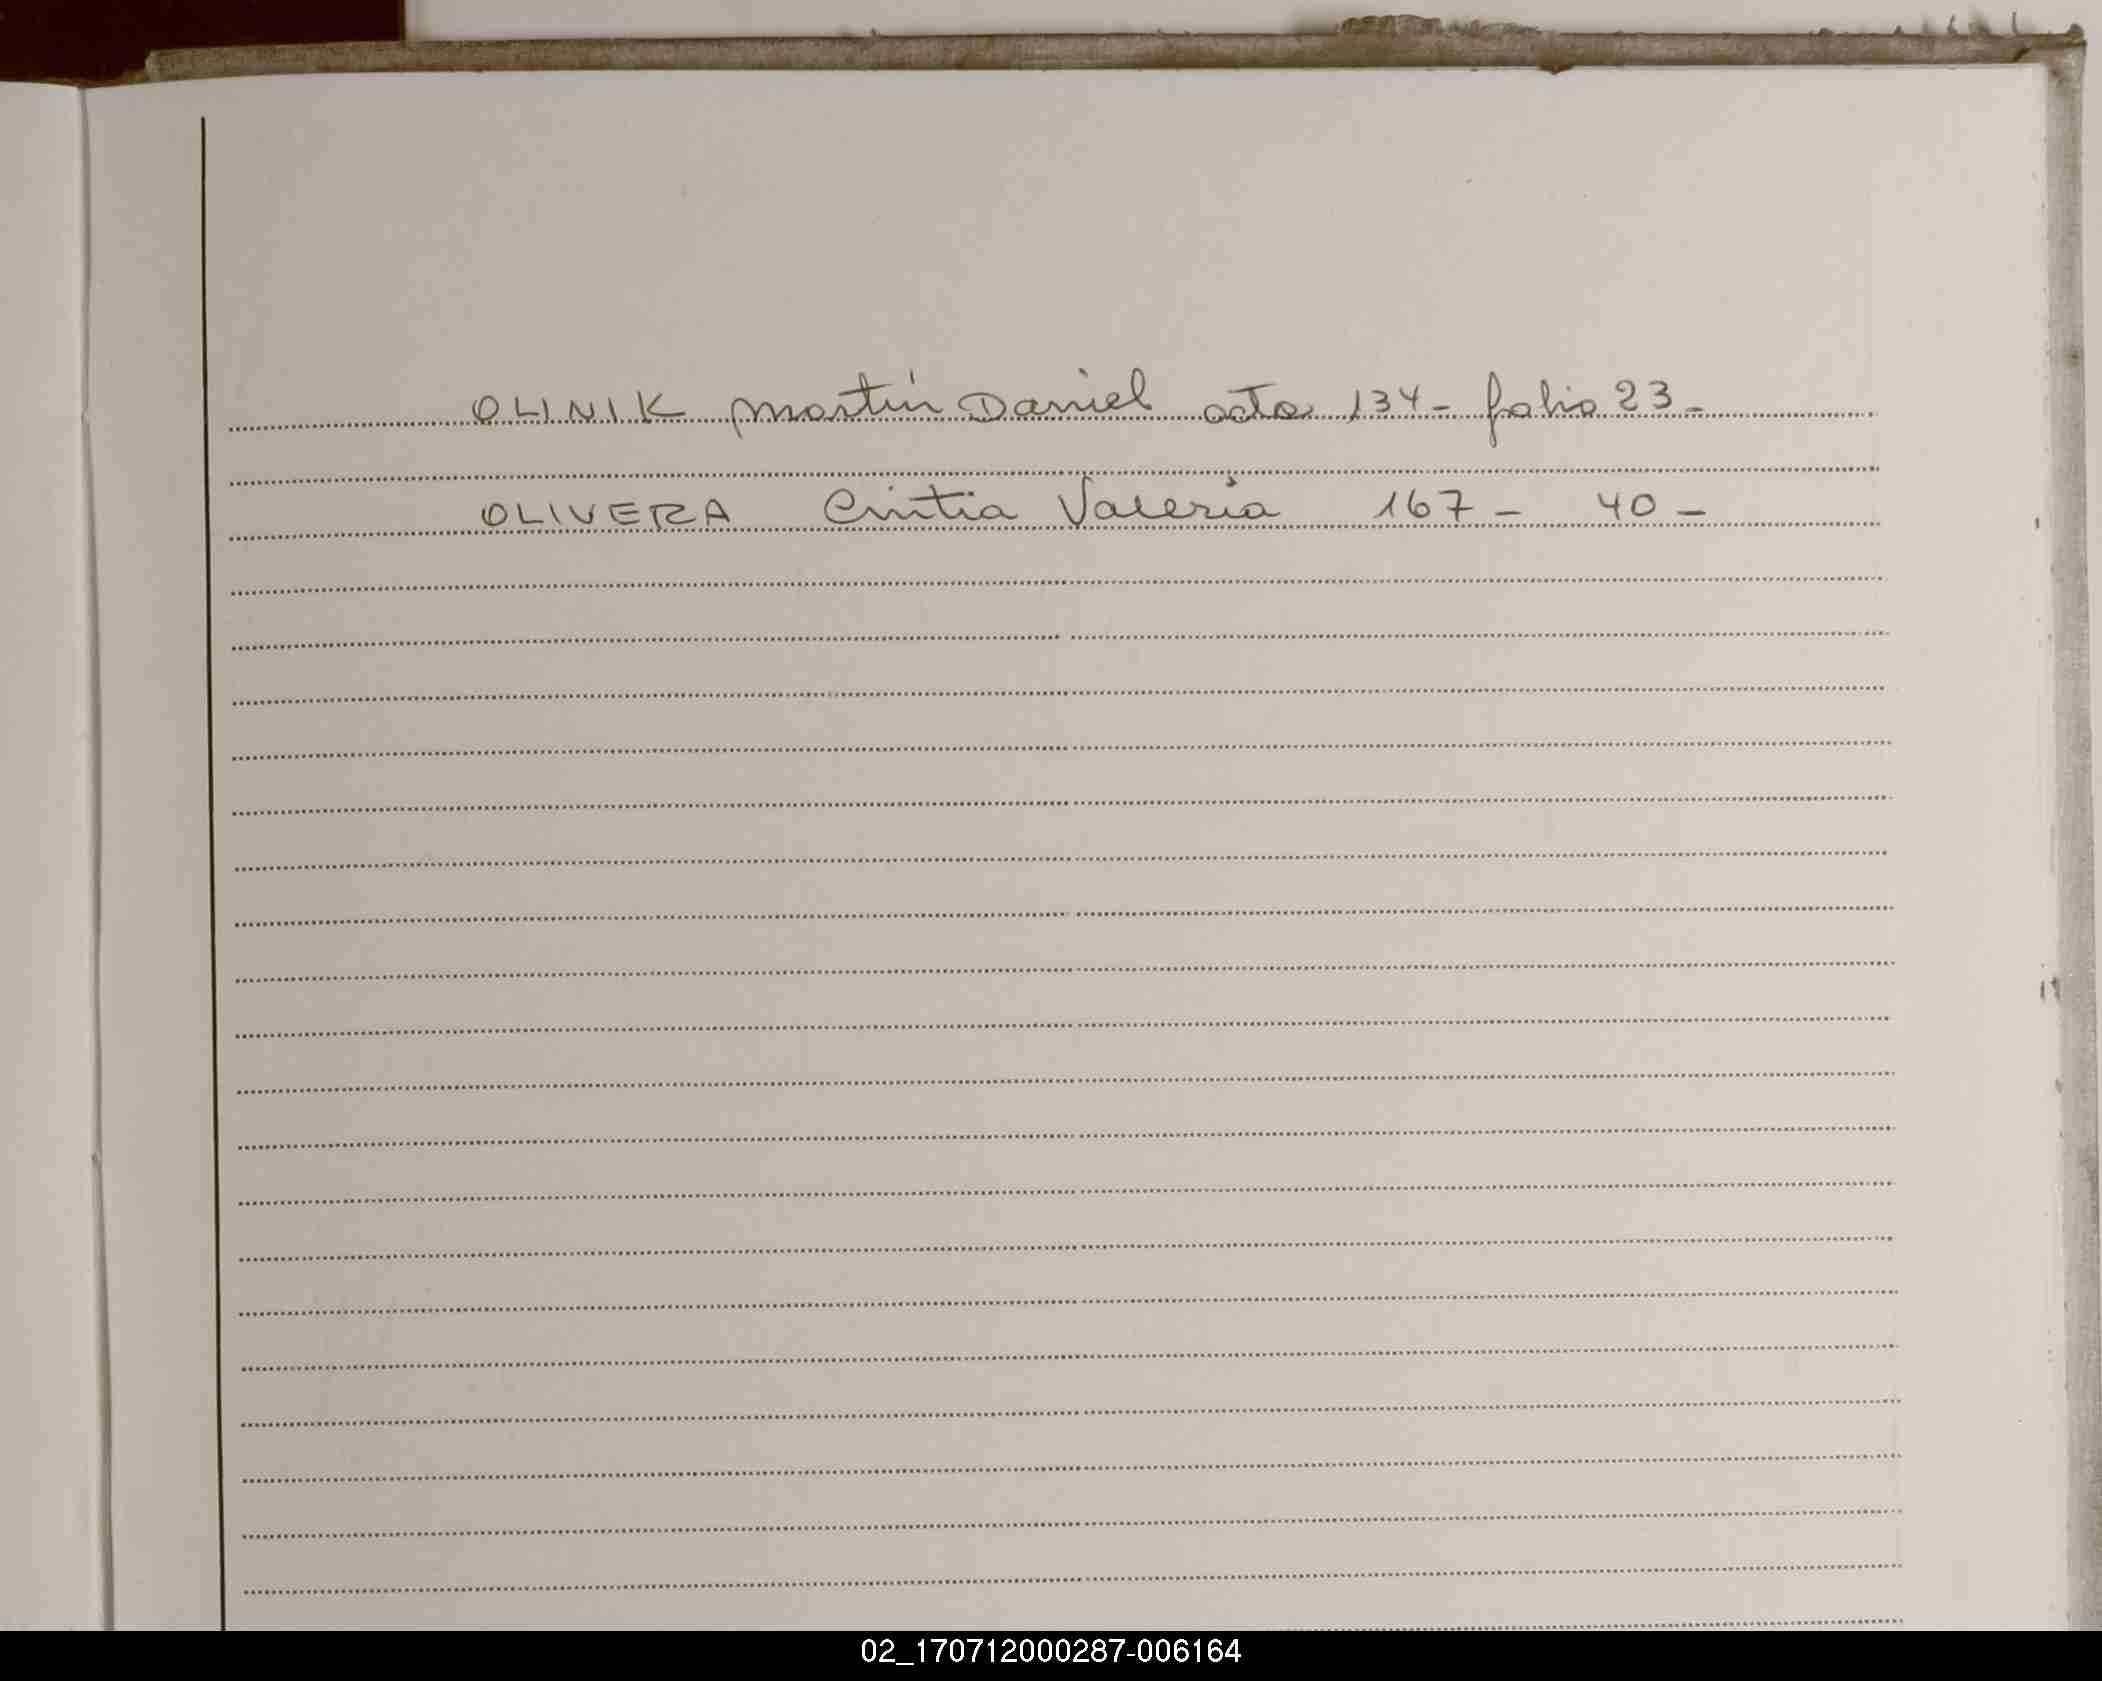 OLINIK Martín Daniel acta 134- folio 23-
OLIVERA Cintia Valeria 167- 40-
02_170712000287-006164